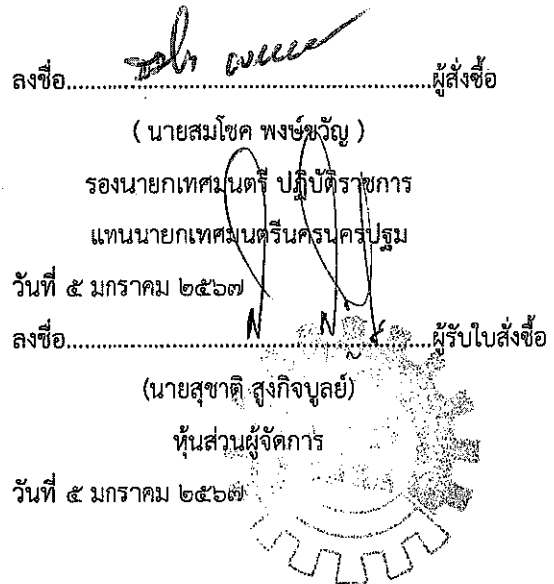 ลงชื่อ................................................ผู้สั่งซื้อ
( นายสมโชค พงษ์ขวัญ )
รองนายกเทศมนตรี ปฏิบัติราชการ
แทนนายกเทศมนตรีนครนครปฐม
วันที่ ๕ มกราคม ๒๕๖๗
ลงชื่อ................................................ผู้รับใบสั่งซื้อ
(นายสุชาติ สูงกิจบูลย์)
หุ้นส่วนผู้จัดการ
วันที่ ๕ มกราคม ๒๕๖๗